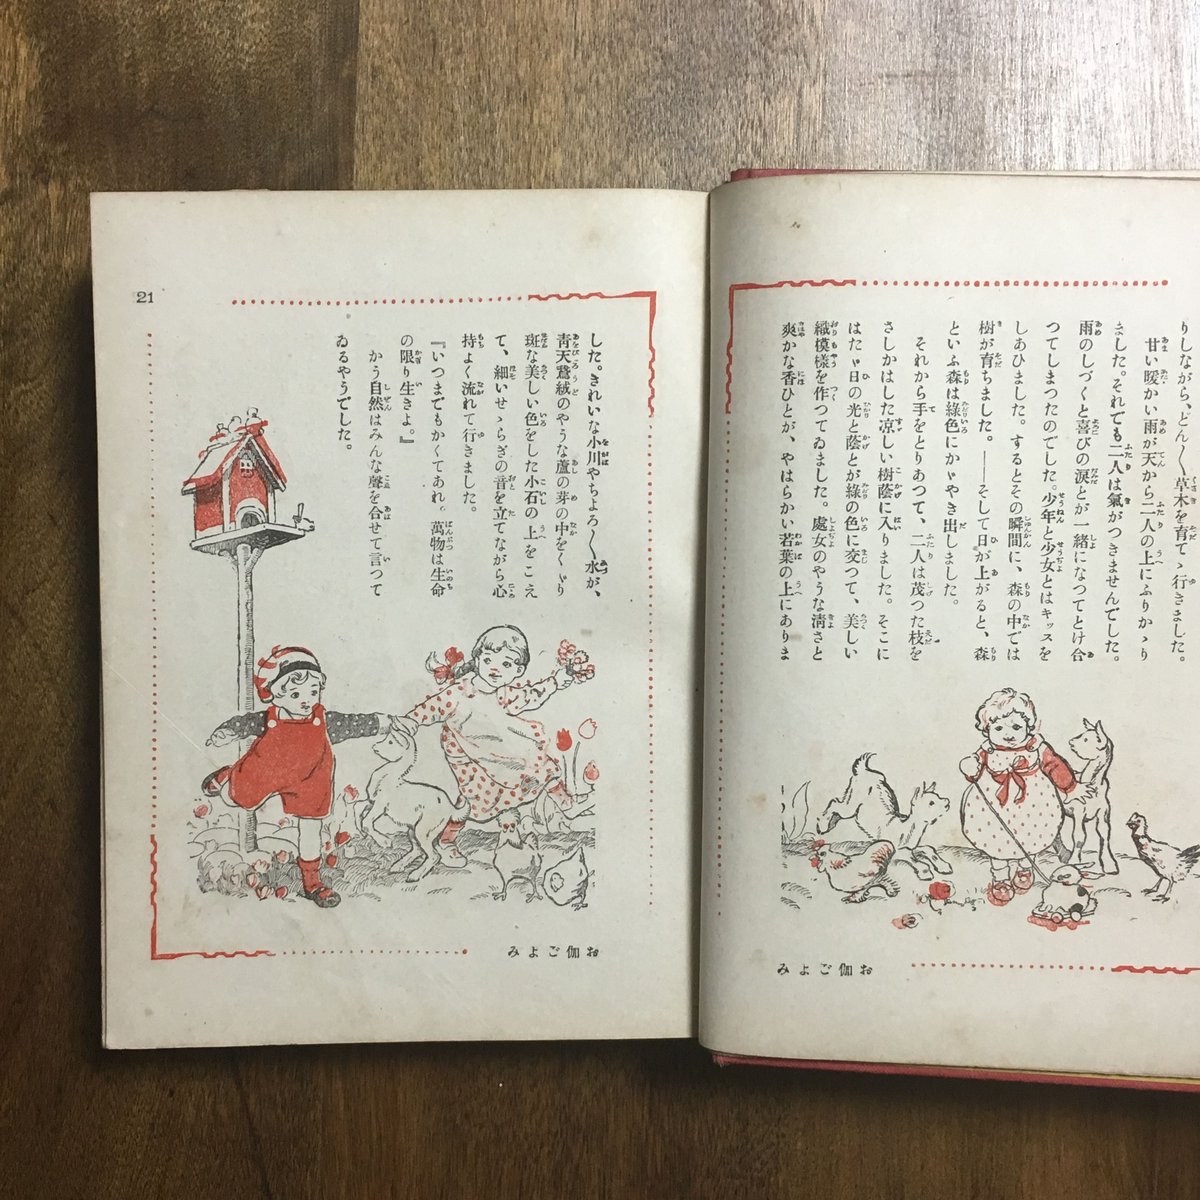 りしながら、どん〱草木を育てゝ行きました。
甘い暖かい雨が天から二人の上にふりかゝり
ました。それでも二人は氣がつきませんでした。
雨のしづくと喜びの涙とが一緒になつてとけ合
つてしまつたのでした。少年と少女とはキッスを
しあひました。するとその瞬間に、森の中では
樹が育ちました。――そして日が上がると、森
といふ森は綠色にかゞやき出しました。
それから手をとりあつて、二人は茂つた枝を
さしかはした凉しい樹蔭に入りました。そこに
はたゞ日の光と蔭とが綠の色に交つて、美しい
織模樣を作つてゐました。處女のやうな淸さと
爽かな香ひとが、やはらかい若葉の上にありま
お伽ごよみ
した。きれいな小川やちよろ〱水が、
靑天鵞絨のやうな蘆の芽の中をくゞり
斑な美しい色をした小石の上をこえ
て、細いせゝらぎの音を立てながら心
持よく流れて行きました。
『いつまでもかくてあれ。萬物は生命
の限り生きよ。』
かう自然はみんな聲を合せて言つて
ゐるやうでした。
お伽ごよみ
21